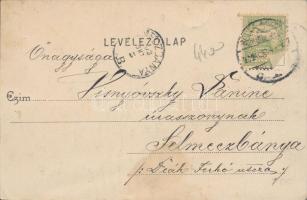 LEVELEZŐ LAP
Önagysága
Czim:
Visnyovszky Janine
úrasszonynak
Selmeczbánya
Deák Ferkó utcza